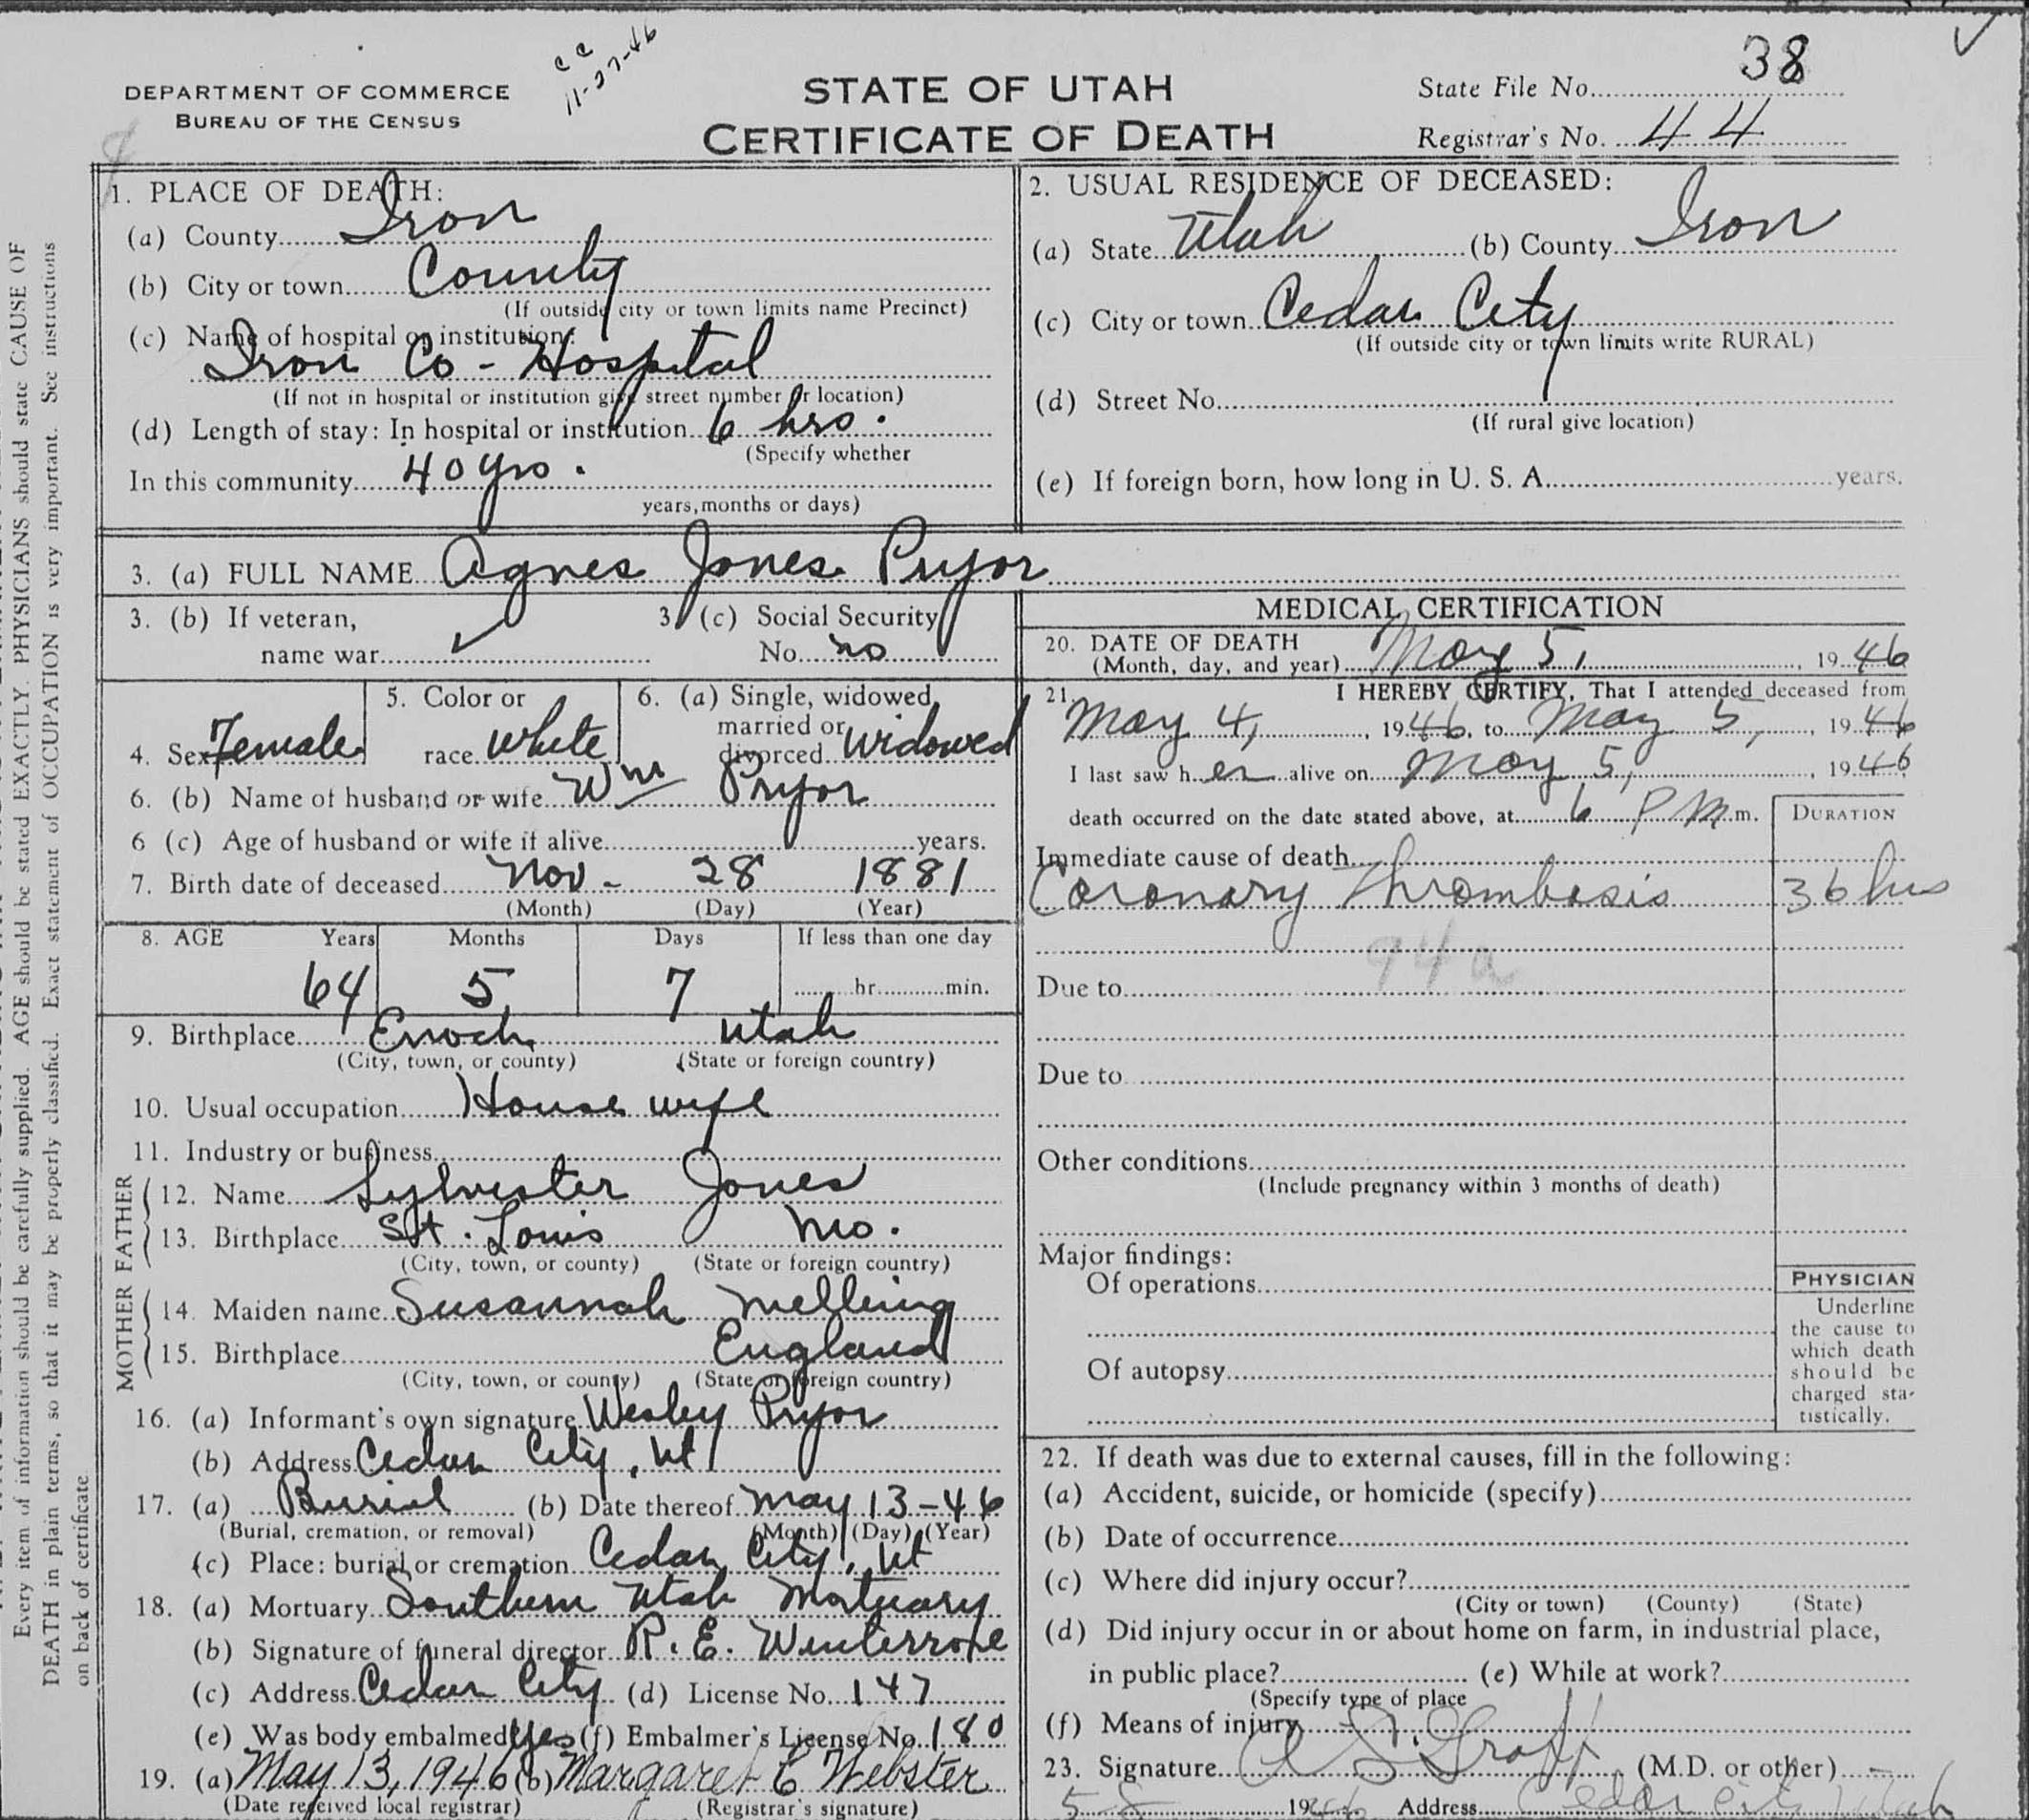 38
cc
11-27-46
DEPARTMENT OF COMMERCE
BUREAU OF THE CENSUS
STATE OF UTAH
CERTIFICATE OF DEATH
State File No.
Registrar's No. 44
1. PLACE OF DEATH:
(a) County Iron
(b) City or town County
(If outside city or town limits name Precinct)
(c) Name of hospital or institution:
Iron Co - Hospital
(If not in hospital or institution give street number or location)
(d) Length of stay: In hospital or institution 6 hrs.
(Specify whether
In this community 40 yrs.
years, months or days)
2. USUAL RESIDENCE OF DECEASED:
(a) State Utah (b) County Iron
(c) City or town Cedar City
(If outside city or town limits write RURAL)
(d) Street No.
(If rural give location)
(e) If foreign born, how long in U. S. A. years.
3. (a) FULL NAME Agnes Jones Pryor
3. (b) If veteran, 3 (c) Social Security
name war No. no
4. Sex Female
5. Color or
race white
6. (a) Single, widowed,
married or
divorced widowed
6. (b) Name of husband or wife Wm Pryor
6 (c) Age of husband or wife if alive years.
7. Birth date of deceased Nov - 28 1881
(Month) (Day) (Year)
8. AGE Years Months Days If less than one day
64 5 7 hr. min.
9. Birthplace Enoch Utah
(City, town, or county) (State or foreign country)
10. Usual occupation House wife
11. Industry or business
FATHER
12. Name Sylvester Jones
13. Birthplace St. Louis Mo.
(City, town, or county) (State or foreign country)
MOTHER
14. Maiden name Susannah Melling
15. Birthplace England
(City, town, or county) (State or foreign country)
16. (a) Informant's own signature Wesley Pryor
(b) Address Cedar City, Ut
17. (a) Burial (b) Date thereof May 13-46
(Burial, cremation, or removal) (Month) (Day) (Year)
(c) Place: burial or cremation Cedar City, Ut
18. (a) Mortuary Southern Utah Mortuary
(b) Signature of funeral director R. E. Winterrose
(c) Address Cedar City (d) License No. 147
(e) Was body embalmed yes (f) Embalmer's License No. 180
19. (a) May 13, 1946 (b) Margaret C Webster
(Date received local registrar) (Registrar's signature)
MEDICAL CERTIFICATION
20. DATE OF DEATH
(Month, day, and year) May 5, 1946
21. I HEREBY CERTIFY, That I attended deceased from
May 4, 1946, to May 5, 1946
I last saw her alive on May 5, 1946
death occurred on the date stated above, at 6 PM m.
DURATION
Immediate cause of death
Coronary Thrombosis 36 hrs
94a
Due to
Due to
Other conditions
(Include pregnancy within 3 months of death)
Major findings:
Of operations
Of autopsy
PHYSICIAN
Underline
the cause to
which death
should be
charged sta-
tistically.
22. If death was due to external causes, fill in the following:
(a) Accident, suicide, or homicide (specify)
(b) Date of occurrence
(c) Where did injury occur?
(City or town) (County) (State)
(d) Did injury occur in or about home on farm, in industrial place,
in public place? (e) While at work?
(Specify type of place
(f) Means of injury
23. Signature Graff (M.D. or other)
5-8 1946 Address Cedar City Utah
Every item of information should be carefully supplied. AGE should be stated EXACTLY. PHYSICIANS should state CAUSE OF
DEATH in plain terms, so that it may be properly classified. Exact statement of OCCUPATION is very important. See instructions
on back of certificate